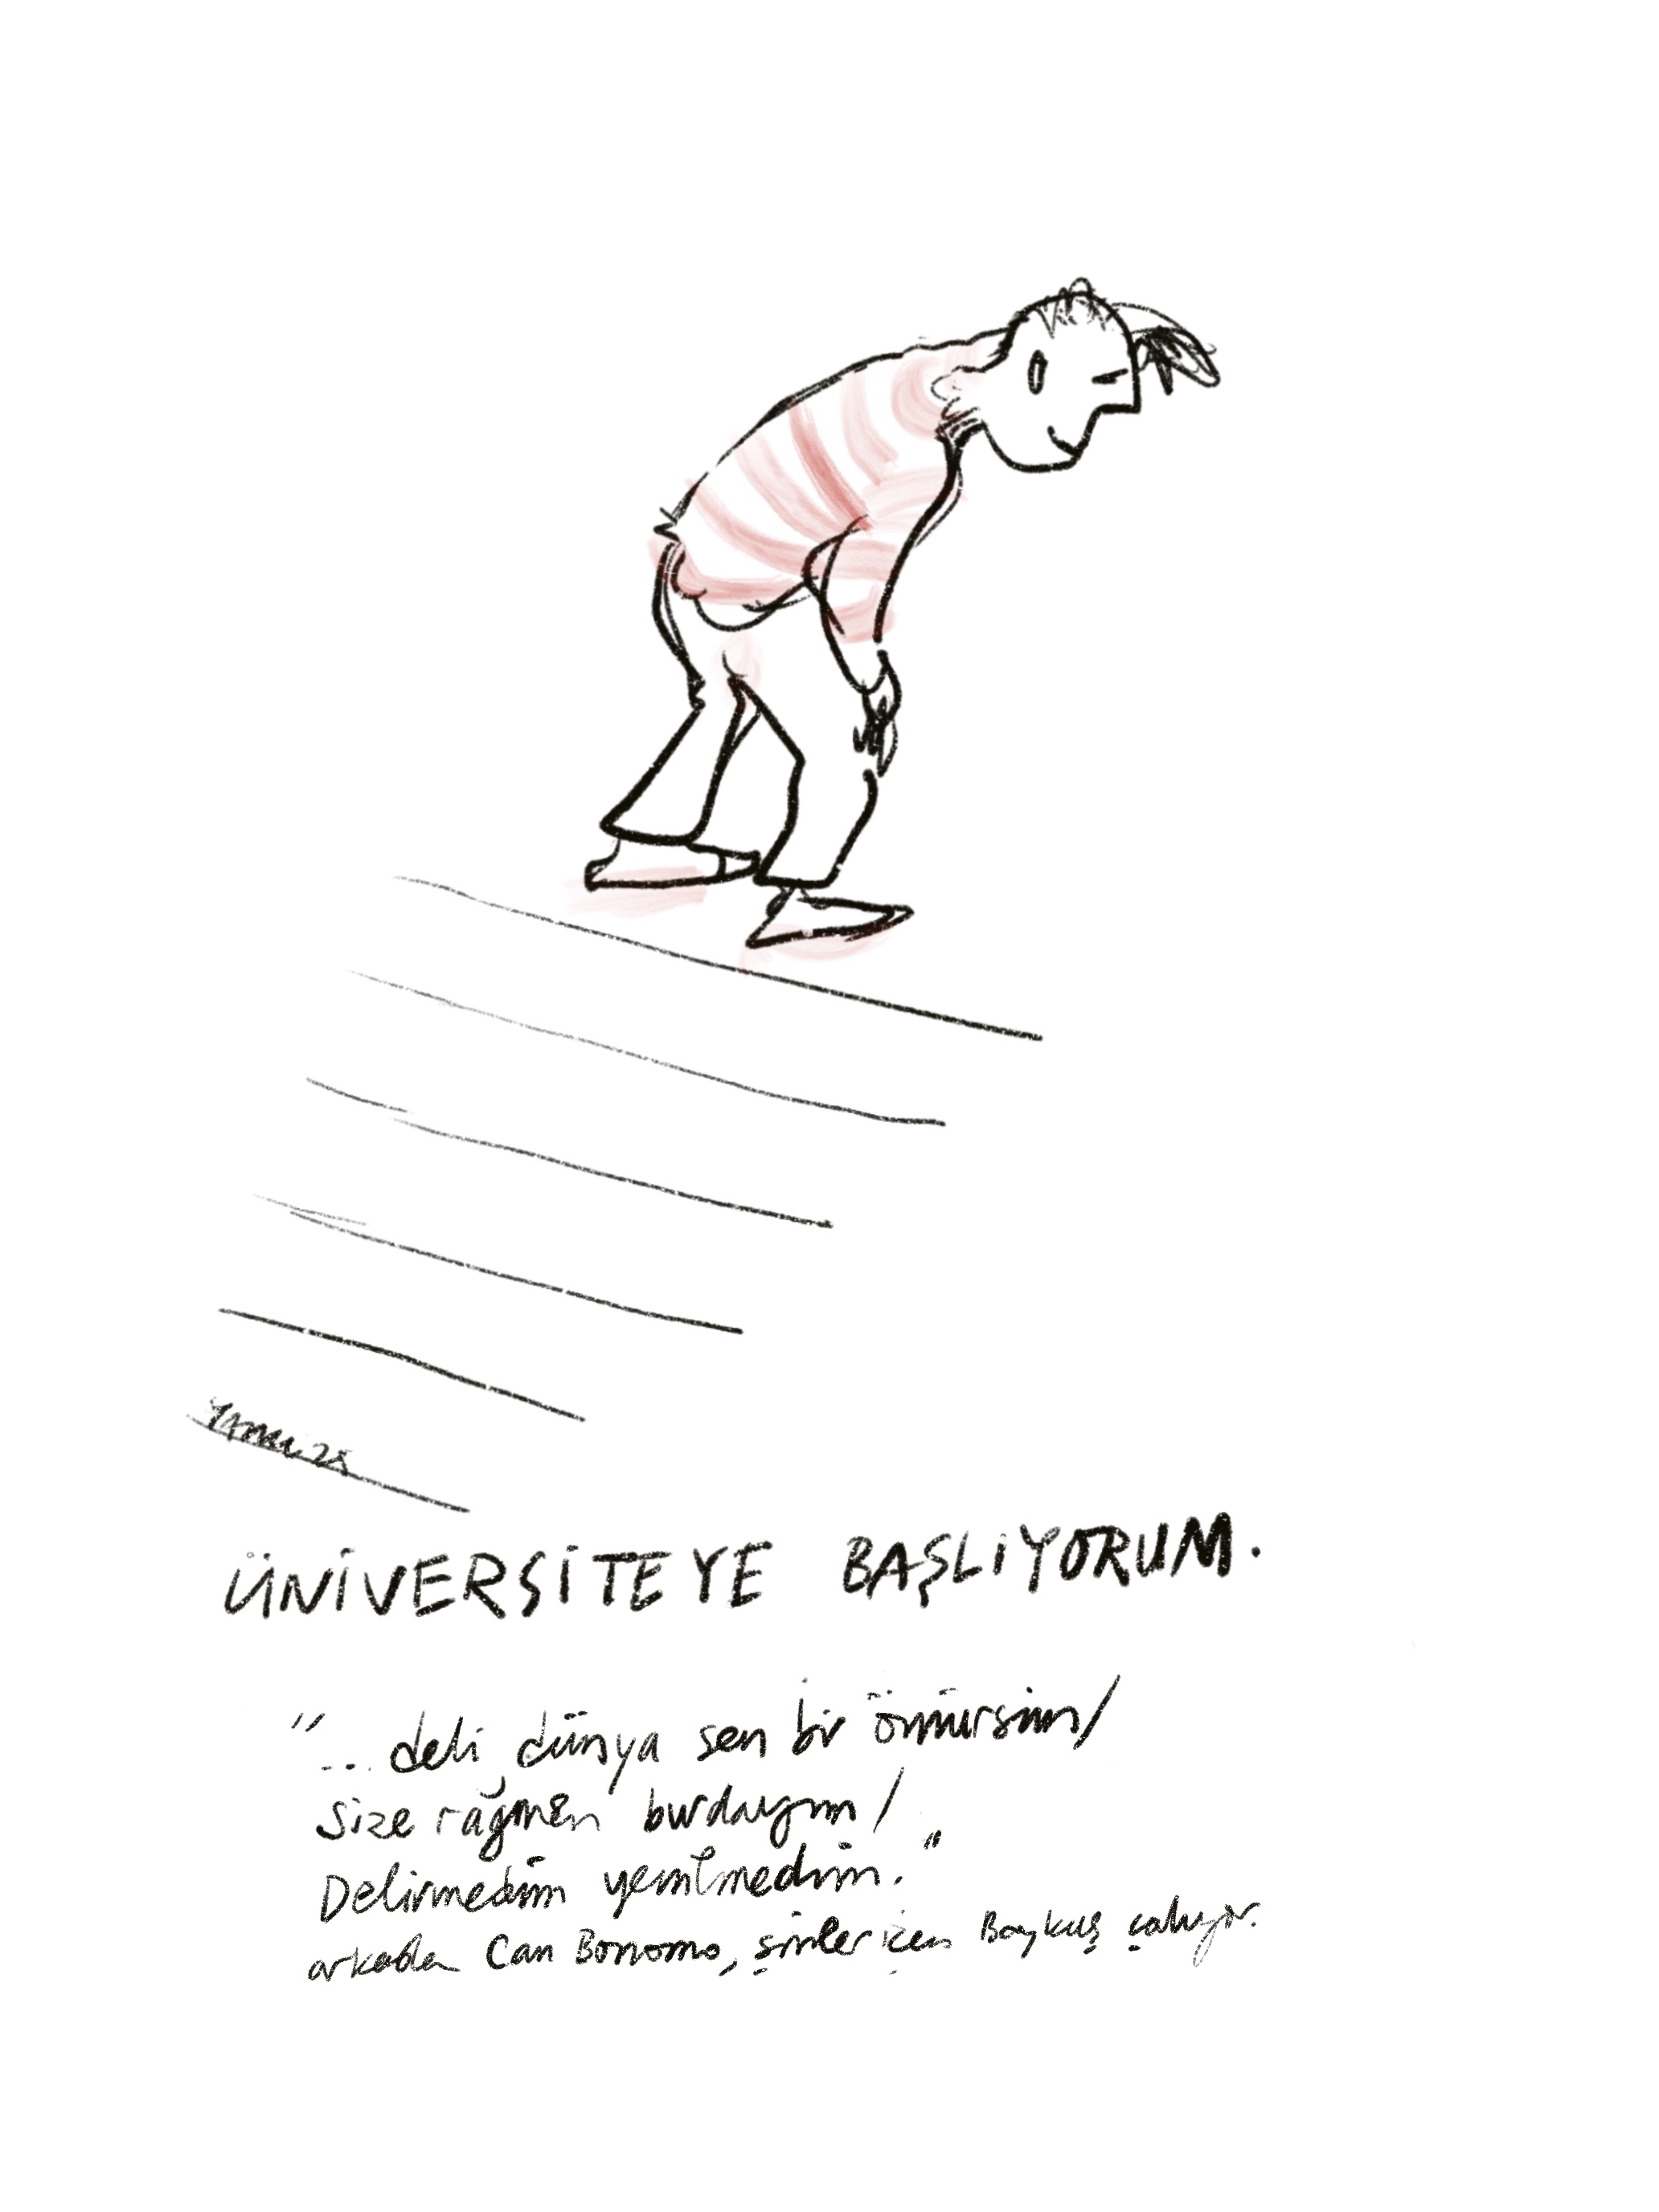 ÜNİVERSİTEYE BAŞLIYORUM.
"... deli dünya sen bir ömürsün/
Size rağmen burdayım/
Delirmedim yenilmedim."
arkada Can Bonomo, şinler için Baykuş çalıyor.